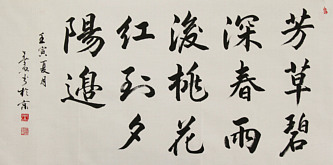 芳草碧
深春雨
後桃花
红到夕
陽邊
壬寅夏月
書於京